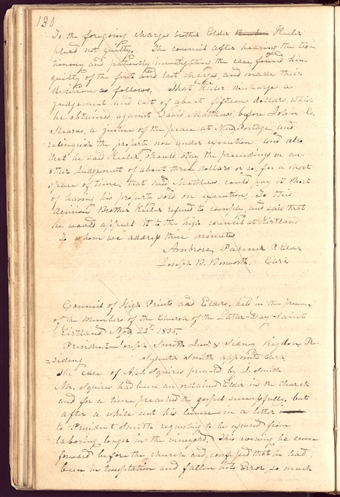 130
To the foregoing charge brother Elder Keeler
plead not guilty. The council after hearing the testi
mony and patiently investigating the case found him
guilty of the first and last charge, and made their
decision as follows, That Keeler discharge a
judgement and cost of about fifteen dollars, which
he obtained against David Matthews before John C.
Stearns, a justice of the peace at New Portage, and
relinquish the property now under execution. And also
that he said Keeler, should stay the proceedings in an
other Judgement of about three dollars or so, for a short
space of time, that said Matthews could pay it short
of having his property sold on execution; To this
decision Brother Keeler refused to comply and said that
he wanted appeal it to the high council at Kirtland
To whom we address these minutes
Ambrose Palmer
Joseph B. Bosworth, Clerk
Council of High Priests and Elders, held in the presence
of the members of the Church of the Latter Day Saints
Kirtland Nov. 1835.
Presidents Joseph Smith Junr & Sidney Rigdon, Pre-
=siding. Sylvester Smith appointed Clerk
The case of A. J. Squires presented by J. Smith
Mr. Squires had been an ordained Elder in the church
and for a time preached the gospel successfully, but
after a while sent his licence in a letter
to President Smith requesting to be excused from
laboring longer in the vineyard. This evening he came
forward before the church and confessed that he had
been in temptation and fallen into Error, so much